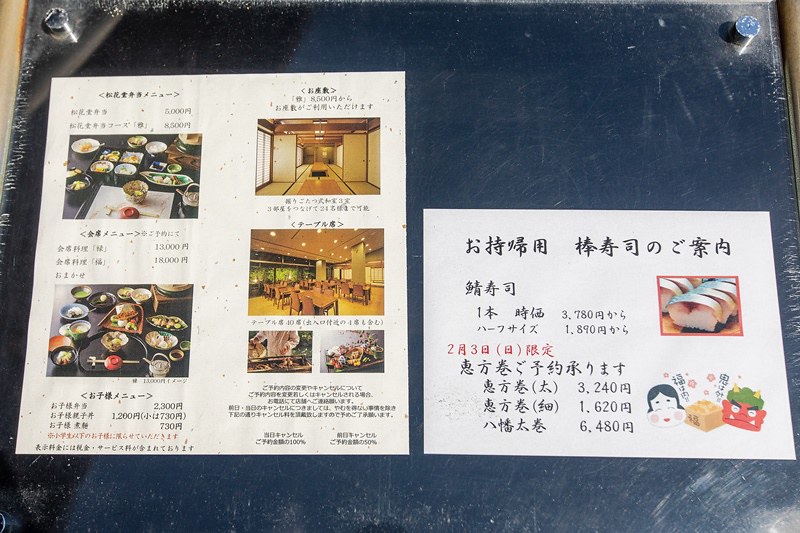 <松花堂弁当メニュー>
松花堂弁当 5,000円
松花堂弁当コース「雅」 8,500円
<会席メニュー>※ご予約にて
会席料理「緑」 13,000円
会席料理「福」 18,000円
おまかせ
緑 13,000円イメージ
<お子様メニュー>
お子様弁当 2,300円
お子様親子丼 1,260円(小は730円)
お子様煮麺 730円
※小学生以下のお子様に限らせていただきます
表示料金には税金・サービス料が含まれております
<お座敷>
「雅」8,500円から
お座敷がご利用いただけます
掘りごたつ式和室3室
3部屋をつなげて24名様まで可能
<テーブル席>
テーブル席40席(出入口付近の4席も含む)
ご予約内容の変更やキャンセルについて
ご予約内容を変更若しくはキャンセルされる場合、
お電話にて店舗へご連絡願います。
前日・当日のキャンセルにつきましては、やむを得ない事情を除き
下記の通りキャンセル料を頂戴致しますので予めご了承願います。
当日キャンセル 前日キャンセル
ご予約金額の100% ご予約金額の50%
お持帰用 棒寿司のご案内
鯖寿司
1本 時価 3,780円から
ハーフサイズ 1,890円から
2月3日(日)限定
恵方巻ご予約承ります
恵方巻(太) 3,240円
恵方巻(細) 1,620円
八幡太巻 6,480円
福は内
鬼は外
福